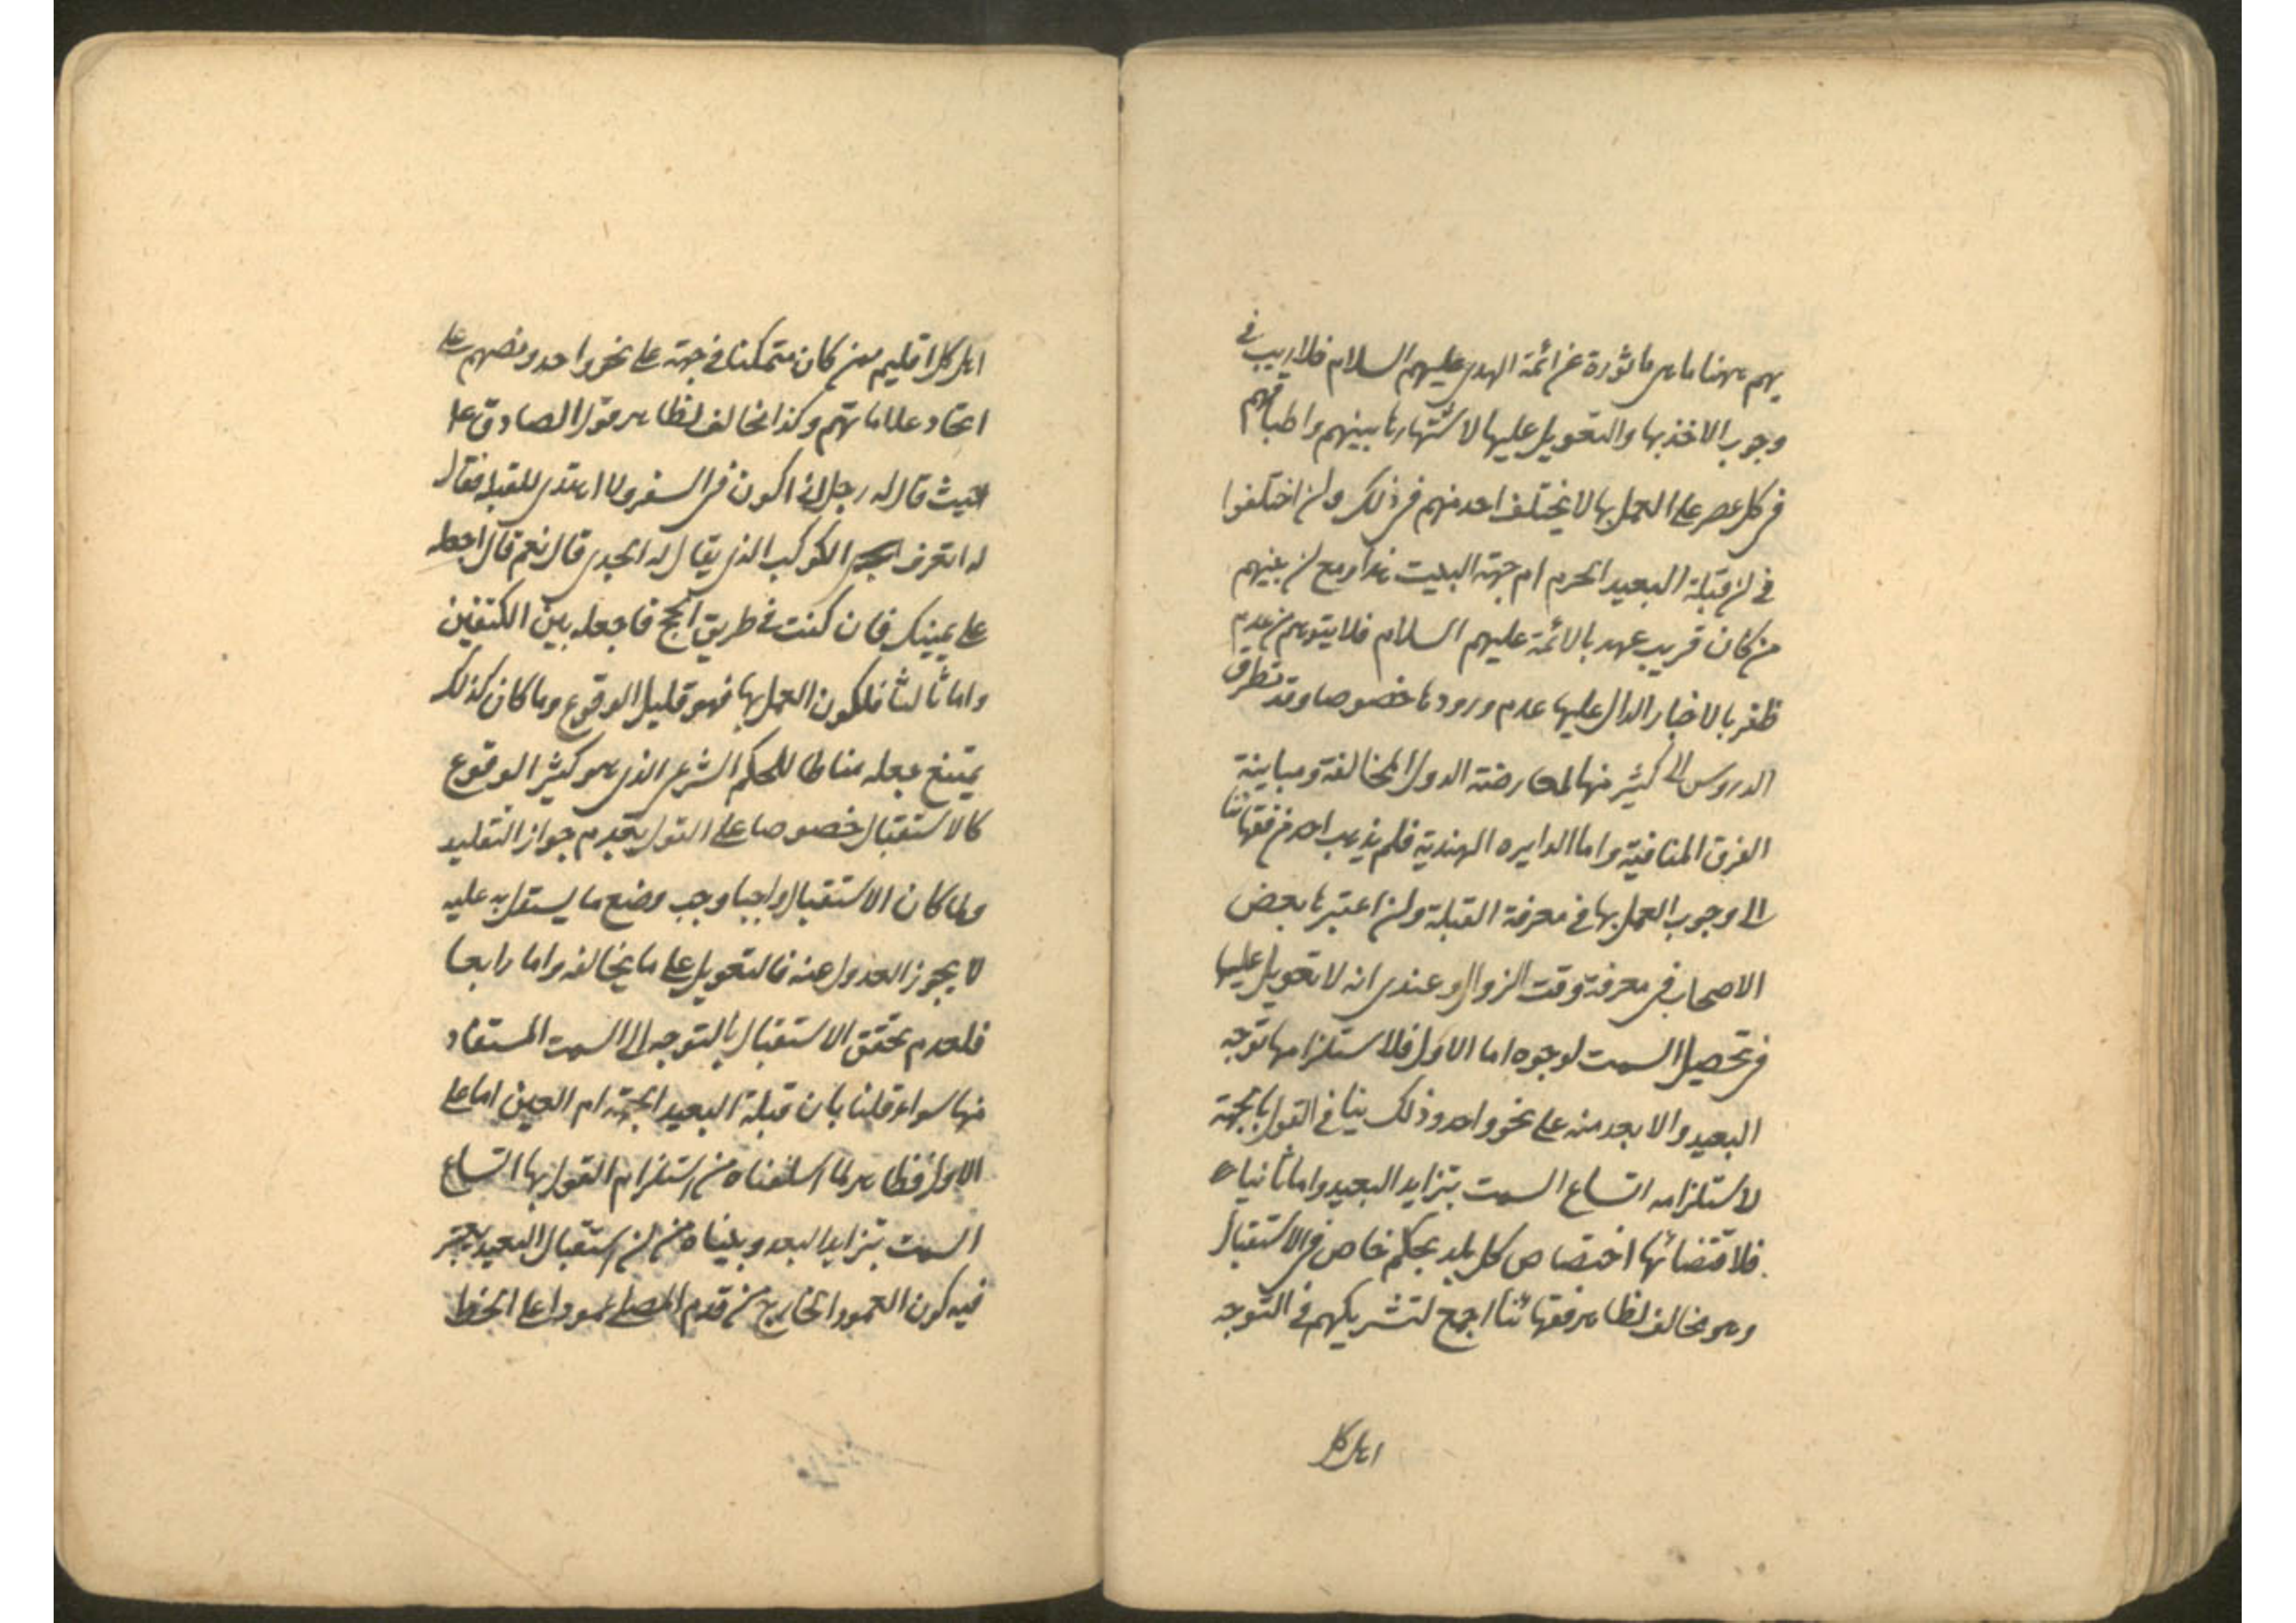 بهم ههنا ما هى ماثورة عن ائمة الهدى عليهم السلام فلا ريب فى
وجوب الاخذ بها والتعويل عليها لاشتهارها بينهم واطباقهم
فى كل عصر على العمل بها لا يختلف احد منهم فى ذلك وان اختلفوا
فى ان قبلة البعيد الحرم ام جهة البيت هذا ومع ان بينهم
من كان قريب عهد بالائمة عليهم السلام فلا يتوهم من عدم
ظفر بالاخبار الدال عليها عدم ورودها خصوصا وقد تطرق
الدروس الى كثير منها لمعارضة الدول المخالفة ومباينة
الفرق المنافية واما الدايره الهندية فلم يذهب احد من فقهائنا
الى وجوب العمل بها فى معرفة القبلة وان اعتبرها بعض
الاصحاب فى معرفة وقت الزوال وعندى انه لا تعويل عليها
فى تحصيل السمت لوجوه اما الاول فلاستلزامها توجه
البعيد والابعد منه على نحو واحد وذلك ينافى القول بالجهة
لاستلزامه اتساع السمت بتزايد البعيد واما ثانيا
فلاقتضائها اختصاص كل بلد بحكم خاص فى الاستقبال
وهو مخالف لظاهر فقهائنا اجمع لتشريكهم فى التوجه
اهل كل
اهل كل اقليم من كان متمكنا فى جهة على نحو واحد ونصهم على
اتحاد علاماتهم وكذا مخالف لظاهر قول الصادق ع
حيث قال له رجل انى اكون فى السفر ولا اهتدى للقبلة فقال
له اتعرف الكوكب الذى يقال له الجدى قال نعم قال اجعله
على يمينك فان كنت فى طريق الحج فاجعله بين الكتفين
واما ثالثا فلكون العمل بها فهو قليل الوقوع وما كان كذلك
يمتنع جعله مناطا للحكم الشرعى الذى هو كثير الوقوع
كالاستقبال خصوصا على القول بعدم جواز التقليد
ولما كان الاستقبال واجبا وجب وضع ما يستقل به عليه
لا يجوز العدول عنه فالتعويل على ما يخالفه واما رابعا
فلعدم تحقق الاستقبال بالتوجه الى السمت المستفاد
منها سواء قلنا بان قبلة البعيد الجهة ام العين اما على
الاول فظاهر لما اسلفناه من استلزام القول بها اتساع
السمت بتزايد البعد وبيناه من ان استقبال البعيد يعتبر
فيه كون العمود الخارج من قدم المصلى عمودا على الخط